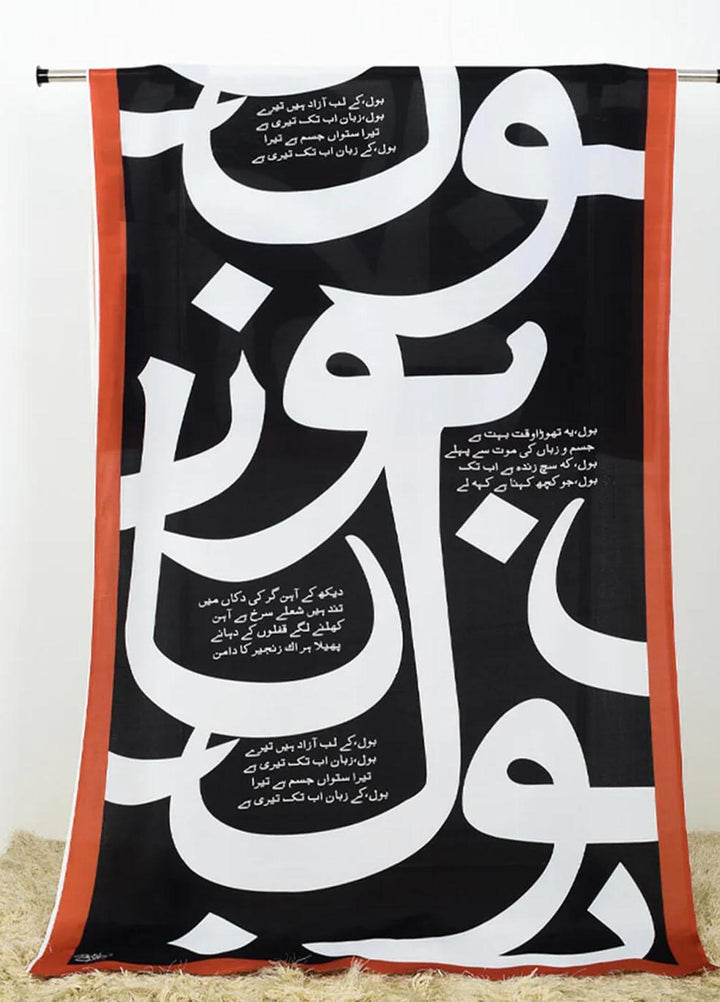 بول،کے لب آزاد ہیں تیرے
بول،زبان اب تک تیری ہے
تیرا ستواں جسم ہے تیرا
بول،کے زبان اب تک تیری ہے
بول،یہ تھوڑا وقت بہت ہے
جسم و زباں کی موت سے پہلے
بول، کہ سچ زندہ ہے اب تک
بول،جو کچھ کہنا ہے کہہ لے
دیکھ کے آہن گر کی دکاں میں
تند ہیں شعلے سرخ ہے آہن
کھلنے لگے قفلوں کے دہانے
پھیلا ہر اك زنجیر کا دامن
بول،کے لب آزاد ہیں تیرے
بول،زبان اب تک تیری ہے
تیرا ستواں جسم ہے تیرا
بول،کے زبان اب تک تیری ہے